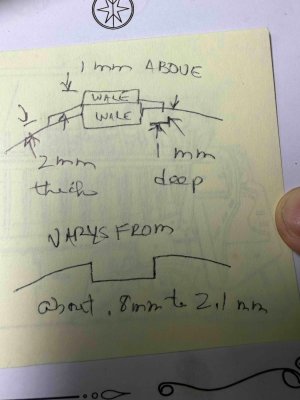 1 mm ABOVE
WALE
WALE
2 mm
thick
1 mm
deep
VARYS FROM
about .8mm to 2.1 mm